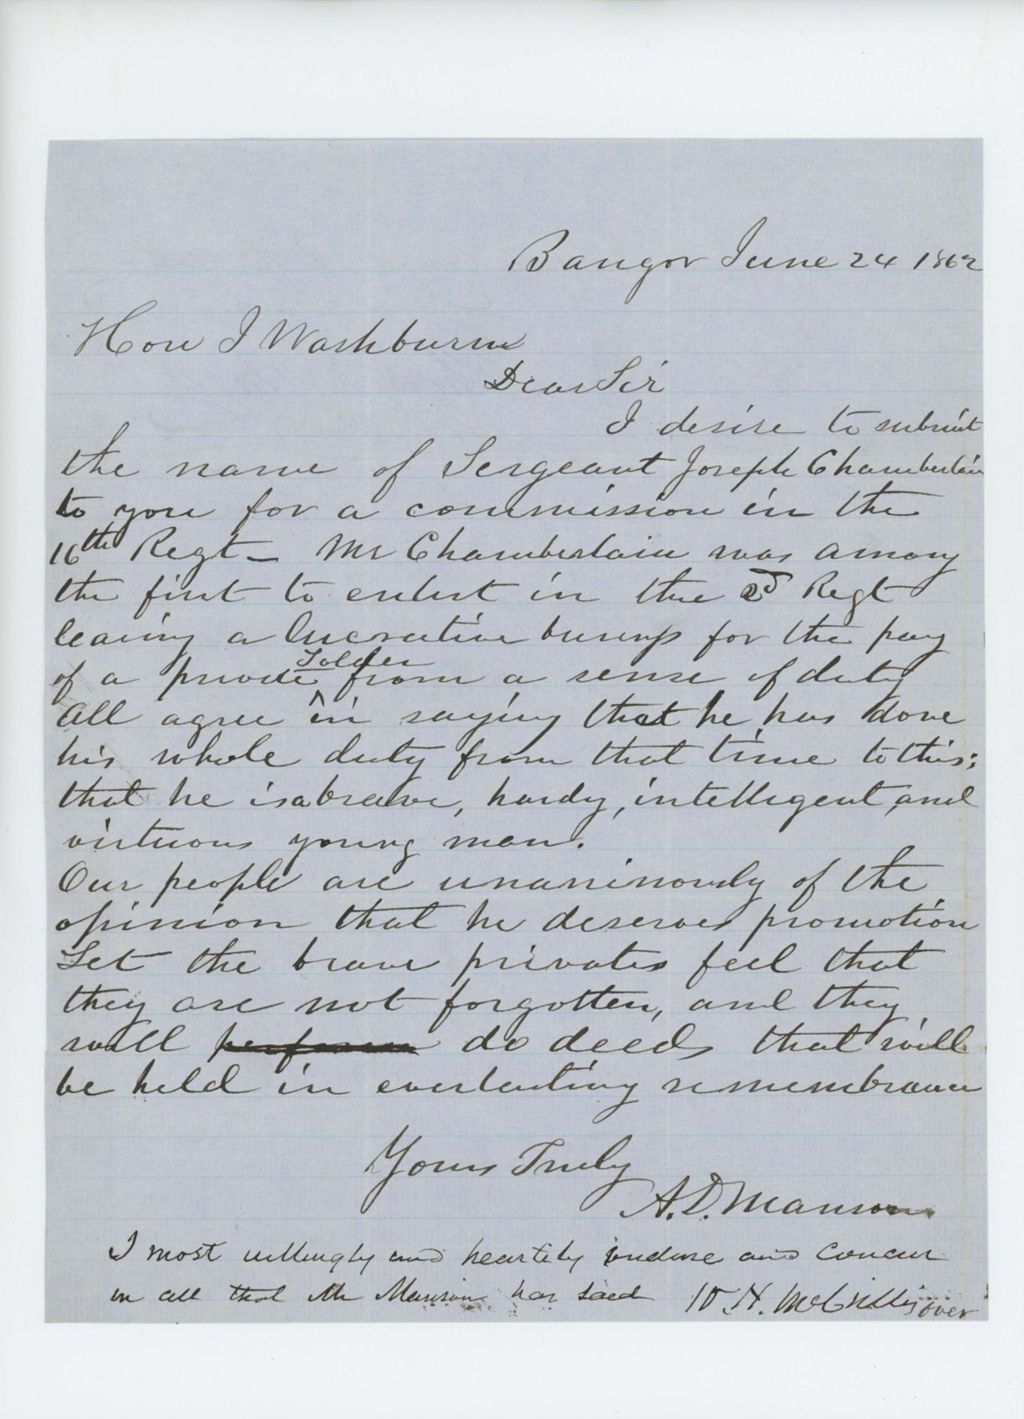 Bangor June 24 1862
Hon I Washburn
Dear Sir
I desire to submit
the name of Sergeant Joseph Chamberlain
to you for a commission in the
16th Regt - Mr Chamberlain was among
the first to enlist in the 2d Regt
leaving a lucrative business for the pay
of a private ^Soldier from a sense of duty
All agree in saying that he has done
his whole duty from that time to this;
that he is a brave, hardy, intelligent, and
virtuous young man.
Our people are unanimously of the
opinion that he deserves promotion
Let the brave privates feel that
they are not forgotten, and they
will perform do deeds that will
be held in everlasting remembrance
Yours Truly
A. D. Manson
I most willingly and heartily endorse and concur
in all that Mr Manson has said H. McCrillis over